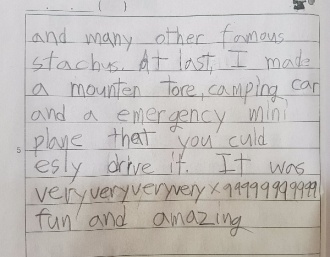 and many other famous
stachus. At last, I made
a mounten tore, camping car
and a emergency mini
plane that you culd
5
esly drive it. It was
veryveryveryvery x99999999999
fun and amazing